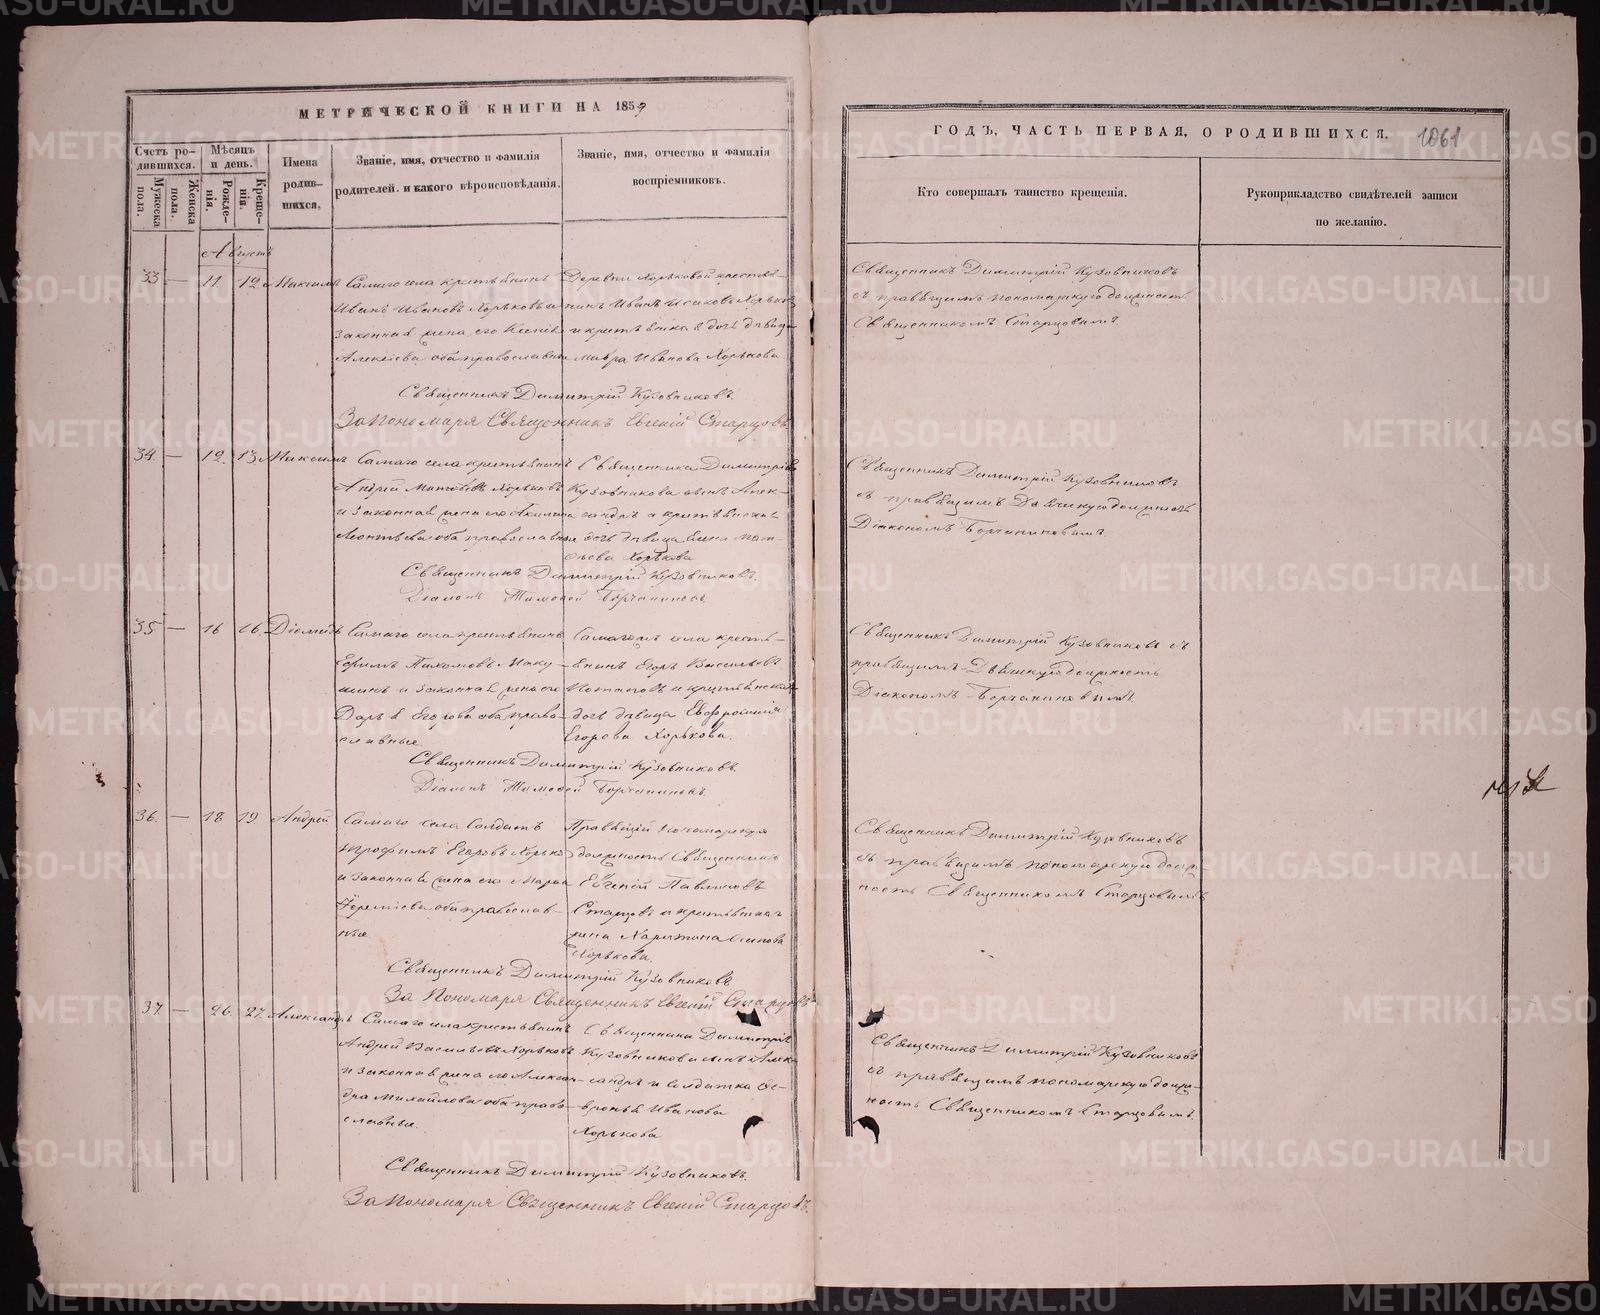 МЕТРИЧЕСКОЙ КНИГИ НА 1859
ГОДЪ, ЧАСТЬ ПЕРВАЯ, О РОДИВШИХСЯ.
1061
Счетъ ро-
дившихся.
Мужеска
пола.
Женска
пола.
Мѣсяцъ
и день.
Рожде-
нія.
Креще-
нія.
Имена
родив-
шихся.
Званіе, имя, отчество и фамилія
родителей, и какого вѣроисповѣданія.
Званіе, имя, отчество и фамилія
воспріемниковъ.
Кто совершалъ таинство крещенія.
Рукоприкладство свидѣтелей записи
по желанію.
Августъ
33 — 11 12 Максимъ
Самаго села крестьянинъ
Иванъ Ивановъ Хорьковъ и
законная жена его
Алексіева оба православны
Деревни Хорьковой крестья-
нинъ Иванъ Хорьковъ
и крестьянка дочь дѣвица
Мавра Иванова Хорькова
Священникъ Димитрій Кузовниковъ
съ правящимъ пономарскую должность
Священникомъ Старцовымъ
Священникъ Димитрій Кузовниковъ
За Пономаря Священникъ Евгеній Старцовъ
34. — 12. 13 Максимъ
Самаго села крестьянинъ
Андрей Хорьковъ
и законная жена его Акилина
Леонтьева оба православны
Священника Димитрія
Кузовникова сынъ Алек-
сандръ и крестьянская
дочь дѣвица Мат-
ѳеева Хорькова
Священникъ Димитрій Кузовниковъ
съ правящимъ Дьяческую должность
Діакономъ Борчаниновымъ.
Священникъ Димитрій Кузовниковъ.
Діаконъ Тимоѳей Борчаниновъ.
35 — 16 16. Діомидъ
Самаго села крестьянинъ
Ефимъ Пахомовъ Маку-
шинъ и законная жена его
Дарья Егорова оба право-
славные.
Самагожъ села кресть-
янинъ Егоръ Васильевъ
Потаповъ и крестьянская
дочь дѣвица Евфросинія
Егорова Хорькова.
Священникъ Димитрій Кузовниковъ съ
правящимъ Дьяческую должность
Діакономъ Борчаниновымъ
Священникъ Димитрій Кузовниковъ.
Діаконъ Тимоѳей Борчаниновъ.
36. — 18 19. Андрей
Самаго села Солдатъ
Трофимъ Егоровъ Хорьковъ
и законная жена его Марья
Іереміева оба православ-
ные
Правящій Пономарскую
должность Священникъ
Евгеній Павлиновъ
Старцовъ и крестьянская
жена Харитина
Хорькова.
Священникъ Димитрій Кузовниковъ
съ правящимъ пономарскую долж-
ность Священникомъ Старцовымъ
Священникъ Димитрій Кузовниковъ
За Пономаря Священникъ Евгеній Старцовъ
37. — 26. 27. Александръ
Самаго села крестьянинъ
Андрей Васильевъ Хорьковъ
и законная жена его Алексан-
дра Михайлова оба право-
славные.
Священника Димитрія
Кузовникова сынъ Алек-
сандръ и солдатка Ѳе-
вронья Иванова
Хорькова
Священникъ Димитрій Кузовниковъ
съ правящимъ пономарскую долж-
ность Священникомъ Старцовымъ.
Священникъ Димитрій Кузовниковъ.
За Пономаря Священникъ Евгеній Старцовъ.
METRIKI.GASO-URAL.RU